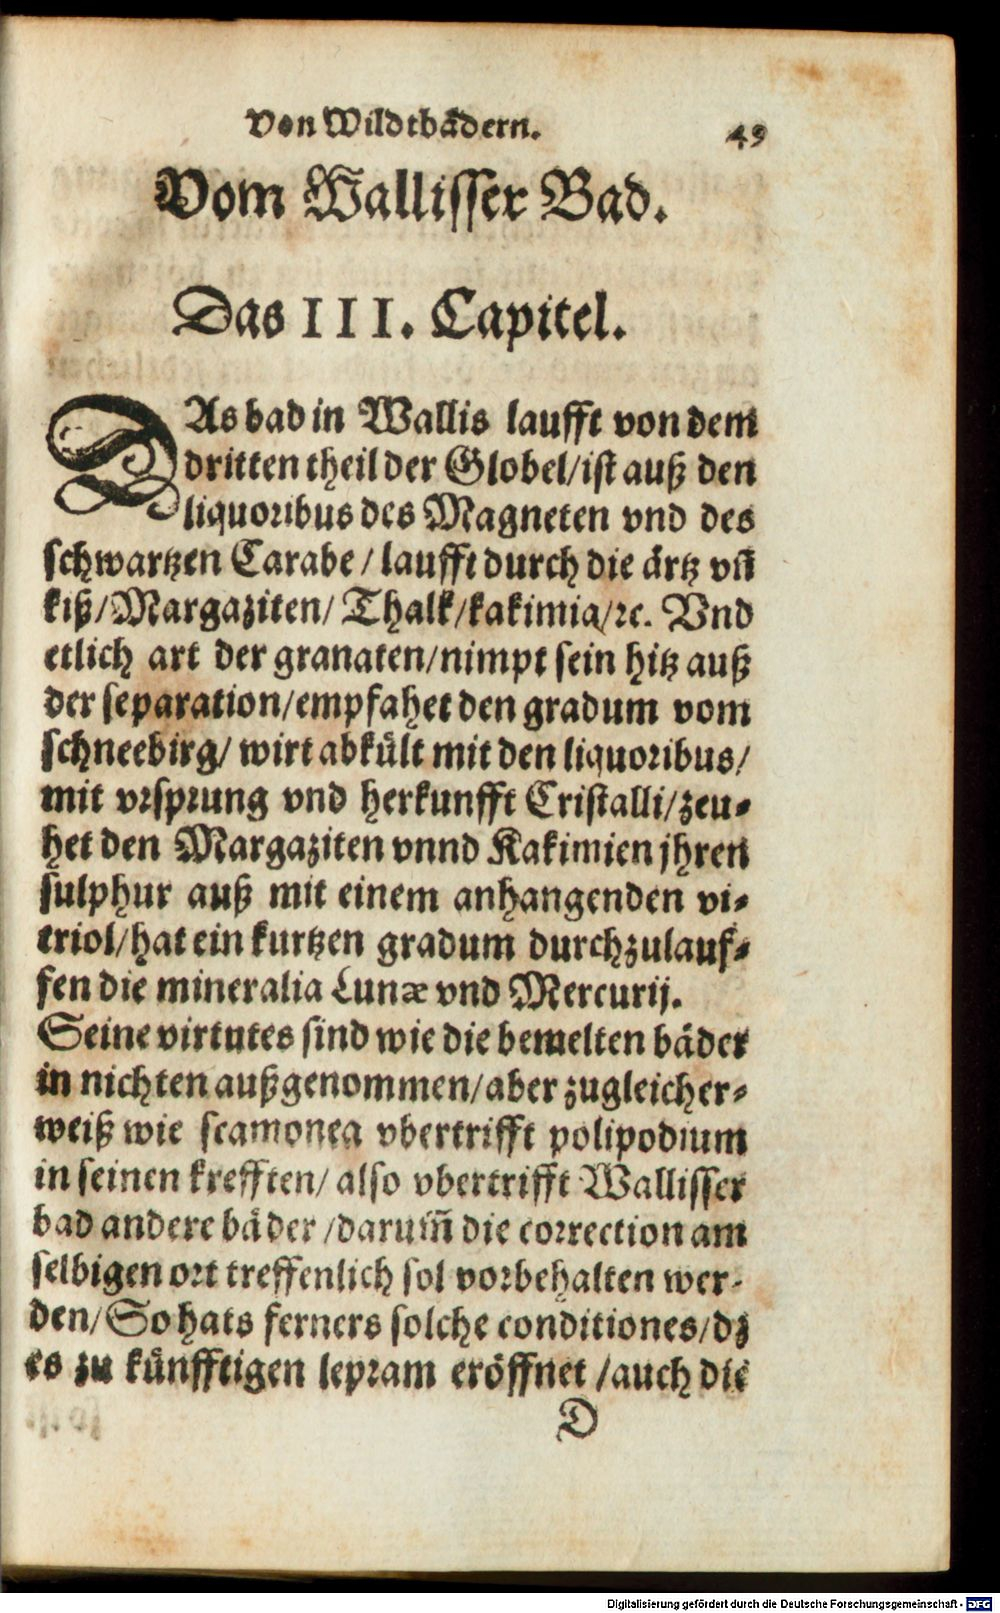 Von Wildtbådern. 49
Vom Wallisser Bad.
Das III. Capitel.
DAs bad in Wallis laufft von dem
dritten theil der Globel/ist auß den
liquoribus des Magneten vnd des
schwartzen Carabe / laufft durch die ärtz vñ
kiß/Margaziten/ Thalk/kakimia/ꝛc. Vnd
etlich art der granaten/nimpt sein hitz auß
der separation/empfahet den gradum vom
schneebirg/ wirt abkůlt mit den liquoribus/
mit vrsprung vnd herkunfft Cristalli/zeu-
het den Margaziten vnnd Kakimien jhren
sulphur auß mit einem anhangenden vi-
triol/hat ein kurtzen gradum durchzulauf-
fen die mineralia Lunæ vnd Mercurij.
Seine virtutes sind wie die bemelten båder
in nichten außgenommen/aber zugleicher-
weiß wie scamonea vbertrifft polipodium
in seinen krefften/ also vbertrifft Wallisser
bad andere båder /darum̃ die correction am
selbigen ort treffenlich sol vorbehalten wer-
den/ So hats ferners solche conditiones/dz
es zu kůnfftigen lepram eröffnet /auch die
D
Digitalisierung gefördert durch die Deutsche Forschungsgemeinschaft - DFG